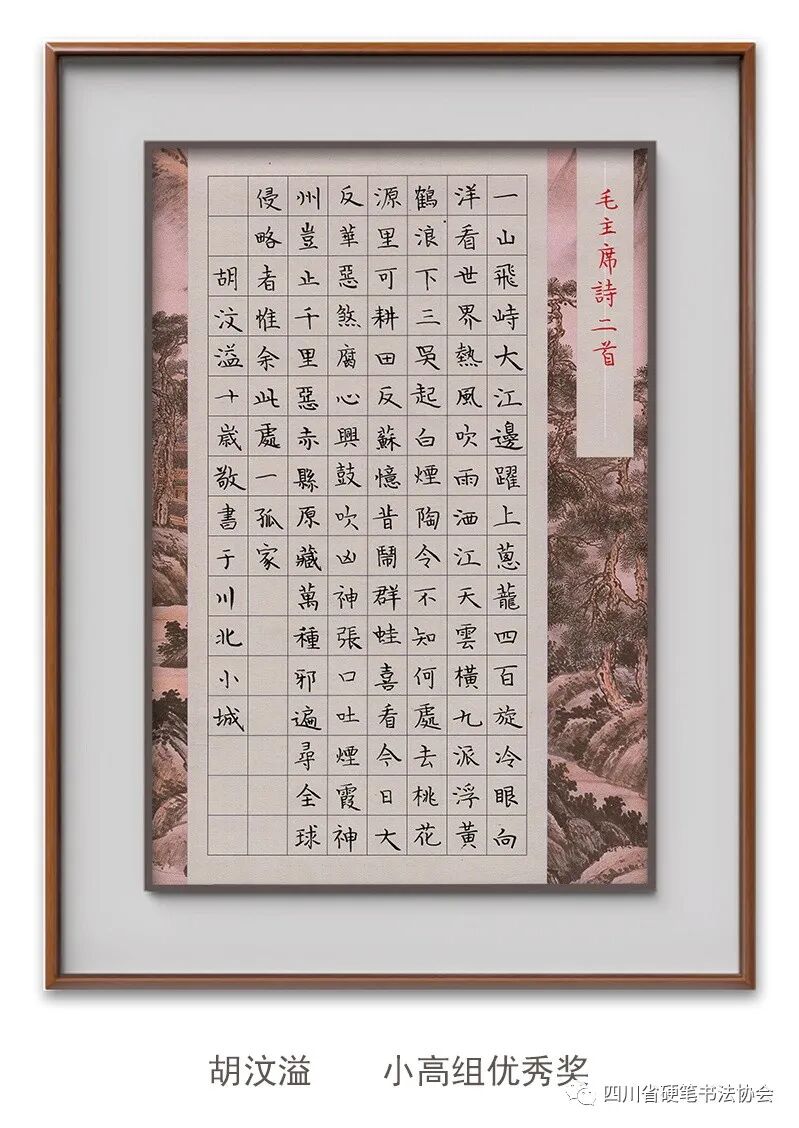 毛主席詩二首
一山飛峙大江邊躍上蔥龍四百旋冷眼向
洋看世界熱風吹雨洒江天雲橫九派浮黃
鶴浪下三吳起白煙陶令不知何處去桃花
源里可耕田反蘇憶昔鬧群蛙喜看今日大
反華惡煞腐心興鼓吹凶神張口吐煙霞神
州豈止千里惡赤縣原藏萬種邪遍尋全球
侵略者惟余此處一孤家
胡汶溢十歲敬書于川北小城
胡汶溢 小高组优秀奖
四川省硬笔书法协会